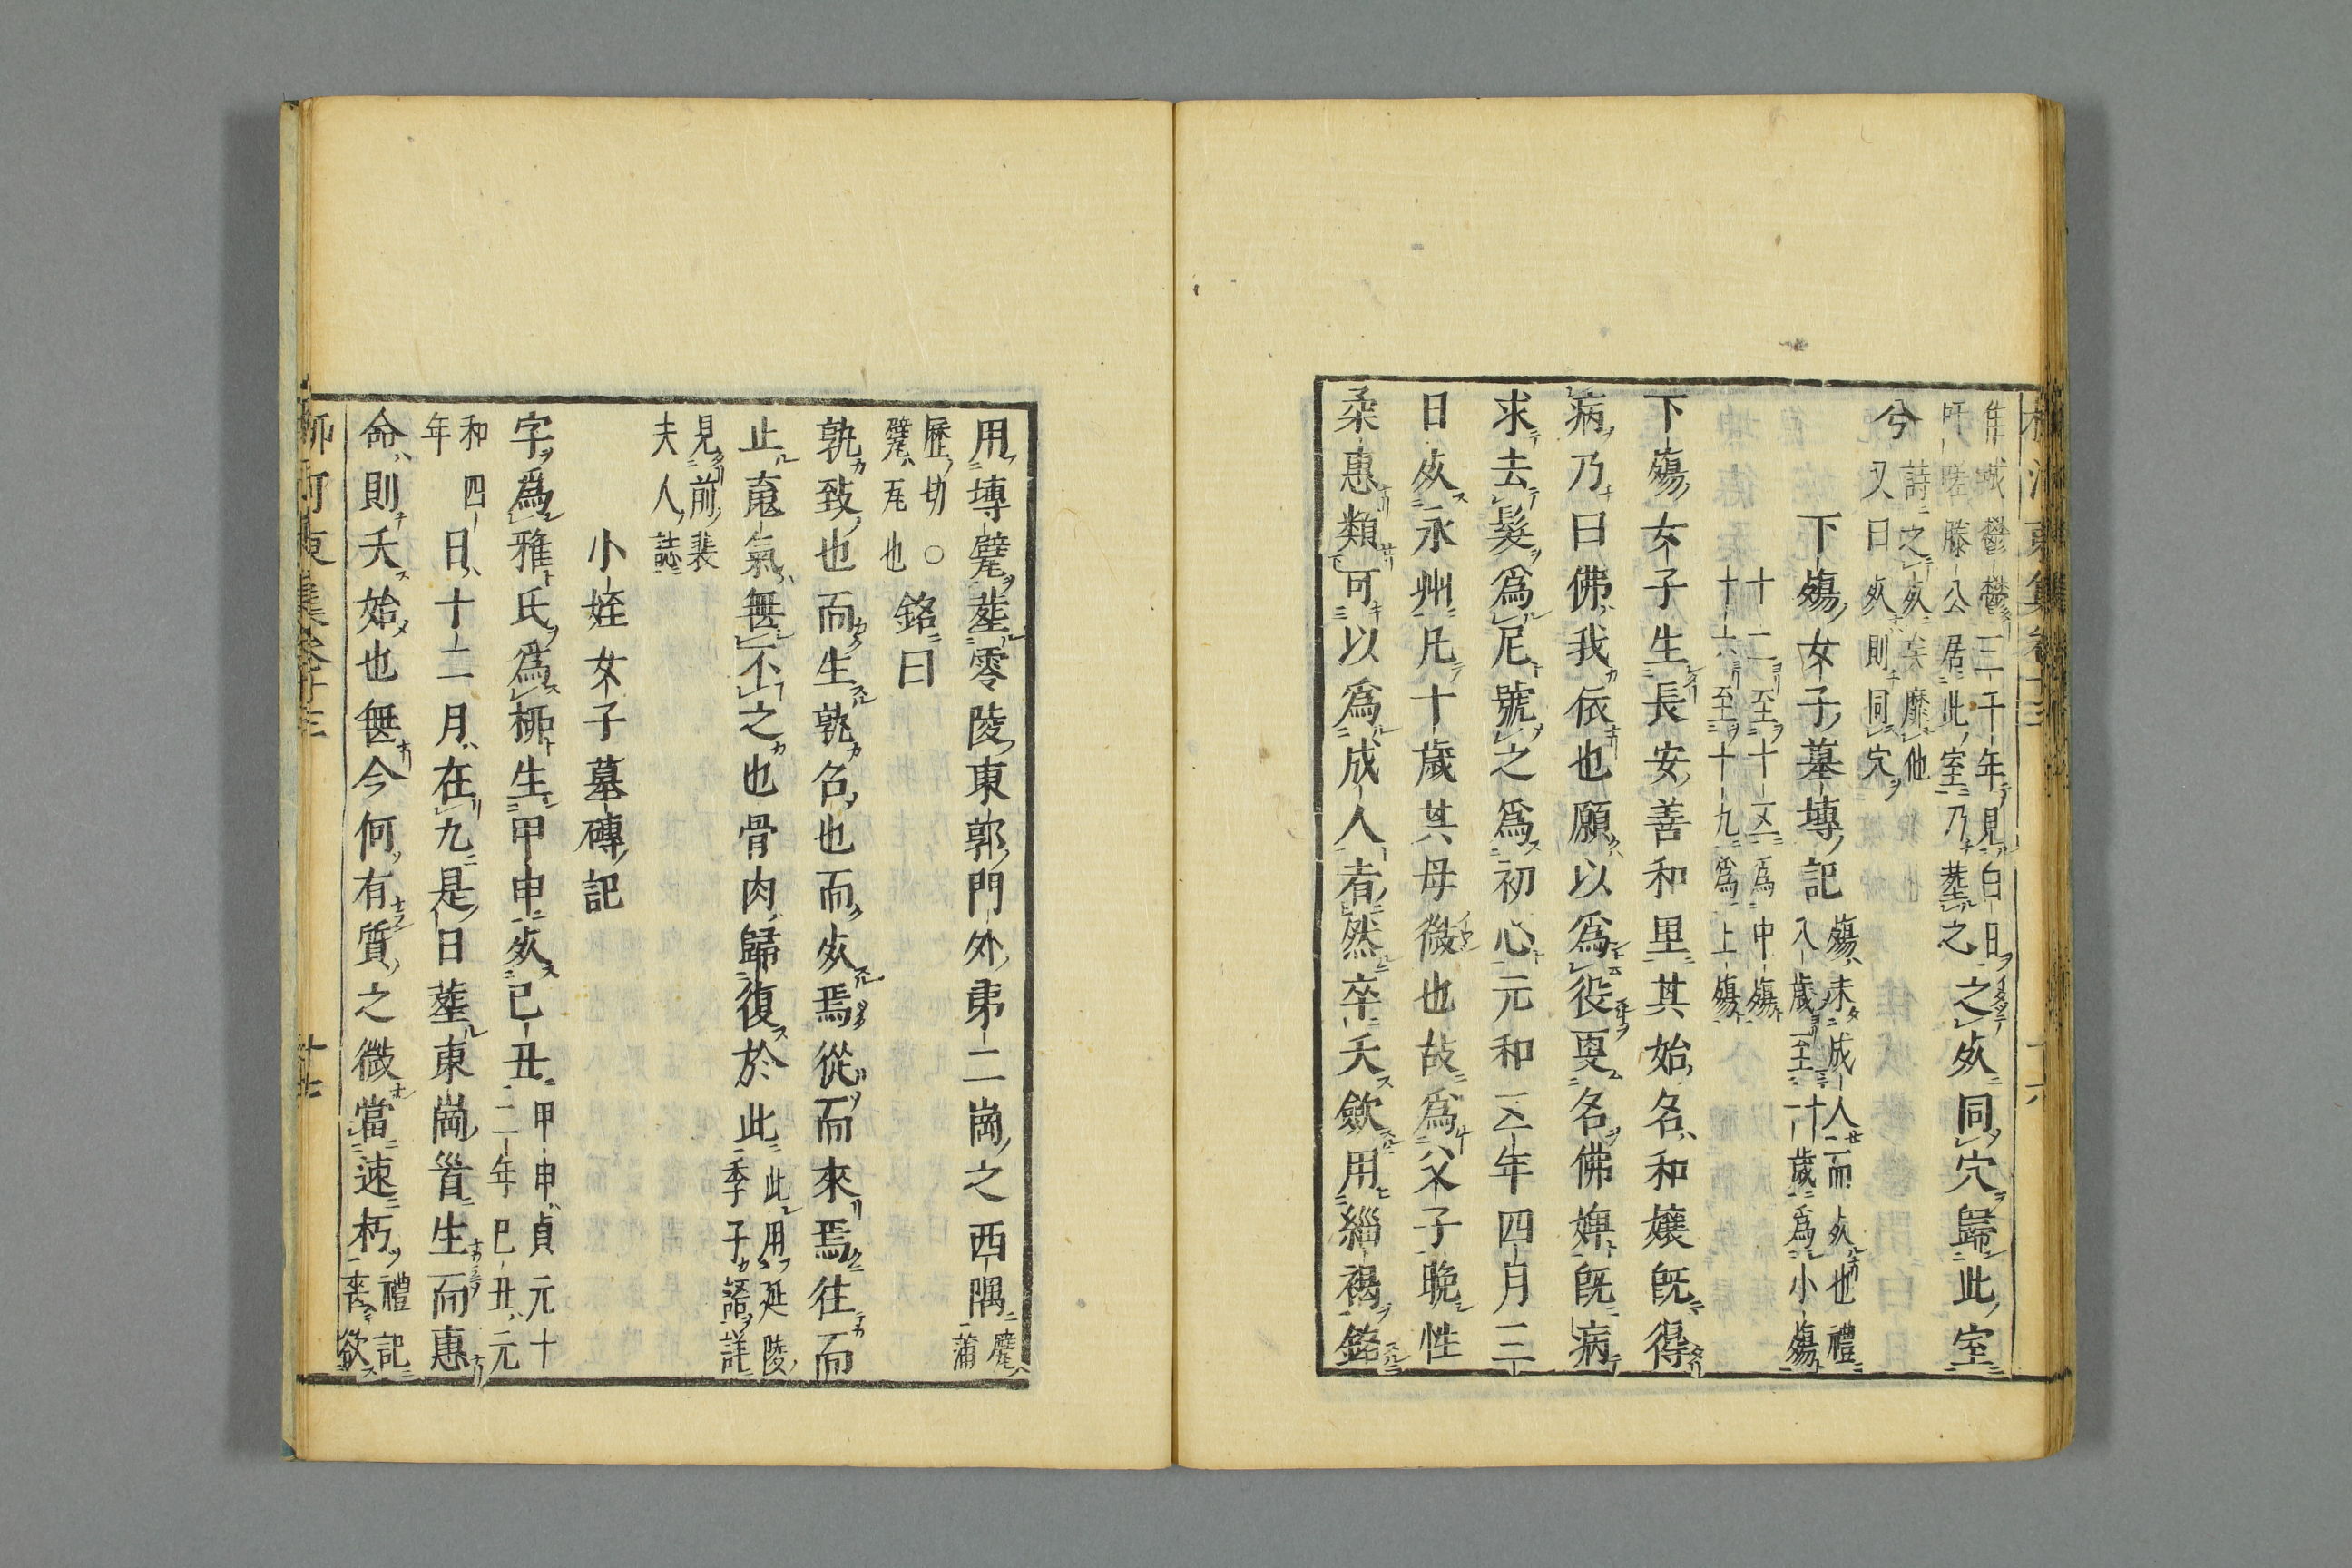 隹城鬱鬱三千年見白日
吁嗟滕公居此室乃葬之
之死同穴歸此室
兮
詩之死矢靡他
又曰死則同穴
下殤女子墓塼記
殤未成人而死也禮
八歲至十一歲爲小殤
十二至十五爲中殤
十六至十九爲上殤
下殤女子生長安善和里其始名和孃旣得
病乃曰佛我依也願以爲役更名佛婢旣病
求去髮爲尼號之爲初心元和五年四月三
日死永州凡十歲其母微也故爲父子晚性
柔惠類可以爲成人者然卒夭歛用緇褐銘
用塼甓葬零陵東郭門外第二崗之西隅
甓蒲
歷切○
甓瓦也
銘曰
孰致也而生孰名也而死焉從而來焉往而
止䰟氣無不之也骨肉歸復於此
此用延陵
季子語詳
見前裴
夫人誌
小姪女子墓磚記
字爲雅氏爲柳生甲申死巳丑
甲申貞元十
二年巳丑元
和四
年
日十二月在九是日葬東崗首生而惠
命則夭始也無今何有質之微當速朽
禮記
喪欲
柳河東集卷十三
十七